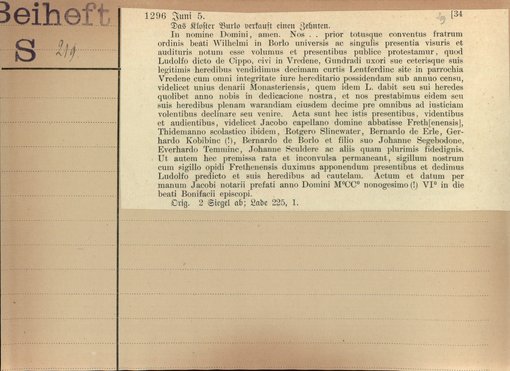 Beiheft
S 219
1296 Juni 5. [34
Das Kloster Burlo verkauft einen Zehnten.
In nomine Domini, amen. Nos . . prior totusque conventus fratrum
ordinis beati Wilhelmi in Borlo universis ac singulis presentia visuris et
audituris notum esse volumus et presentibus publice protestamur, quod
Ludolfo dicto de Cippo, civi in Vredene, Gundradi uxori sue ceterisque suis
legitimis heredibus vendidimus decimam curtis Lentferdinc site in parrochia
Vredene cum omni integritate iure hereditario possidendam sub annuo censu,
videlicet unius denarii Monasteriensis, quem idem L. dabit seu sui heredes
quolibet anno nobis in dedicacione nostra, et nos prestabimus eidem seu
suis heredibus plenam warandiam eiusdem decime pre omnibus ad iusticiam
volentibus declinare seu venire. Acta sunt hec istis presentibus, videntibus
et audientibus, videlicet Jacobo capellano domine abbatisse Freth[enensis],
Thidemanno scolastico ibidem, Rotgero Slinewater, Bernardo de Erle, Ger-
hardo Kobibinc (!), Bernardo de Borlo et filio suo Johanne Segebodone,
Everhardo Temminc, Johanne Sculdere ac aliis quam plurimis fidedignis.
Ut autem hec premissa rata et inconvulsa permaneant, sigillum nostrum
cum sigillo opidi Frethenensis duximus apponendum presentibus et dedimus
Ludolfo predicto et suis heredibus ad cautelam. Actum et datum per
manum Jacobi notarii prefati anno Domini M°CC° nonogesimo (!) VI° in die
beati Bonifacii episcopi.
Orig. 2 Siegel ab; Lade 225, 1.